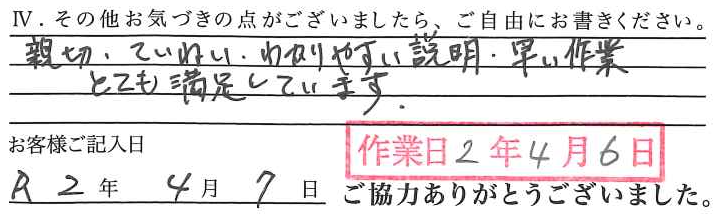 Ⅳ．その他お気づきの点がございましたら、ご自由にお書きください。
親切・ていねい・わかりやすい説明・早い作業
とても満足しています.
お客様ご記入日
作業日2年4月6日
R2年 4月 7日 ご協力ありがとうございました。